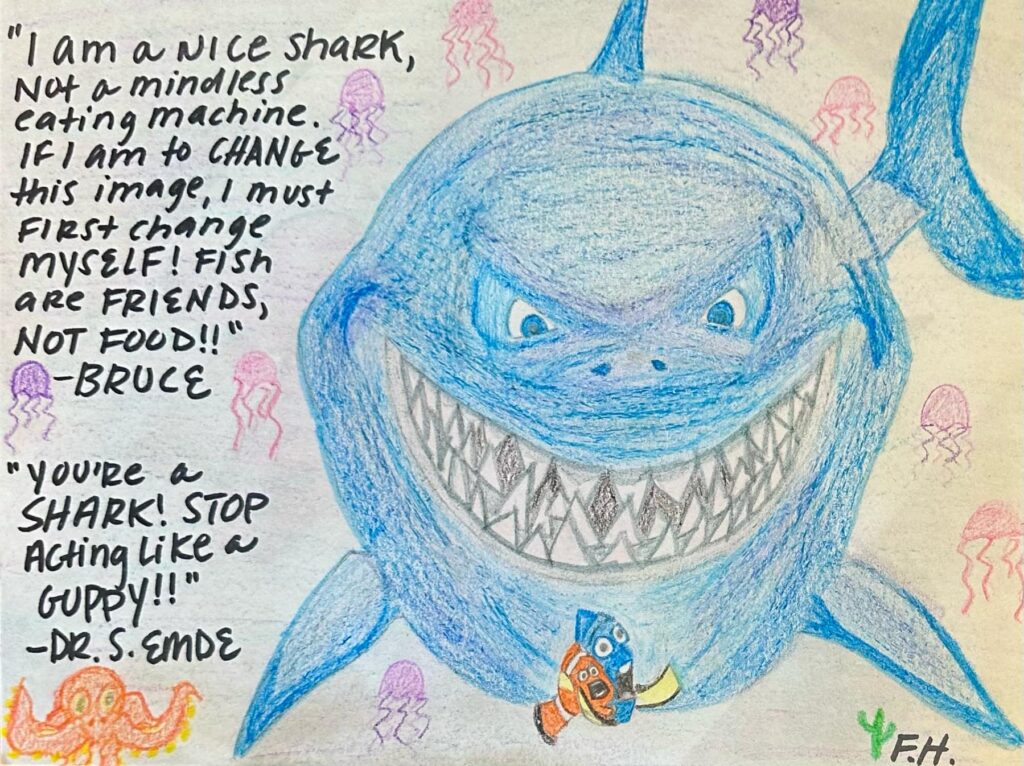 "I am a NICE SHARK,
Not a mindless
eating machine.
IF I am to CHANGE
this image, I must
FIRST change
MYSELF! FISH
are FRIENDS,
NOT FOOD!!"
-BRUCE
"YOU'RE a
SHARK! STOP
Acting Like a
GUPPY!!"
-DR. S. EMDE
F.H.